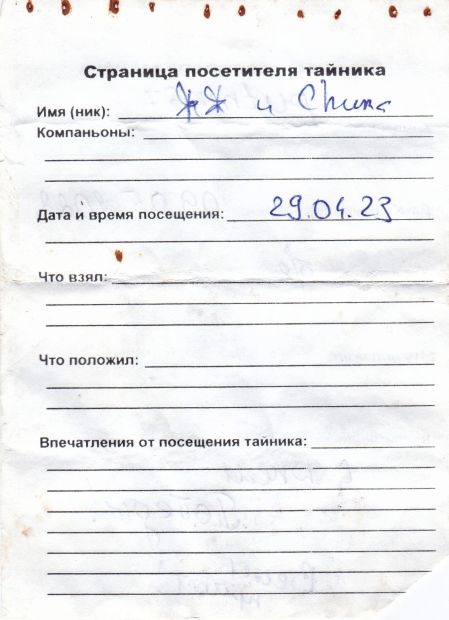 Страница посетителя тайника
Имя (ник): ЖЖ и Chuna
Компаньоны:
Дата и время посещения: 29.04.23
Что взял:
Что положил:
Впечатления от посещения тайника: